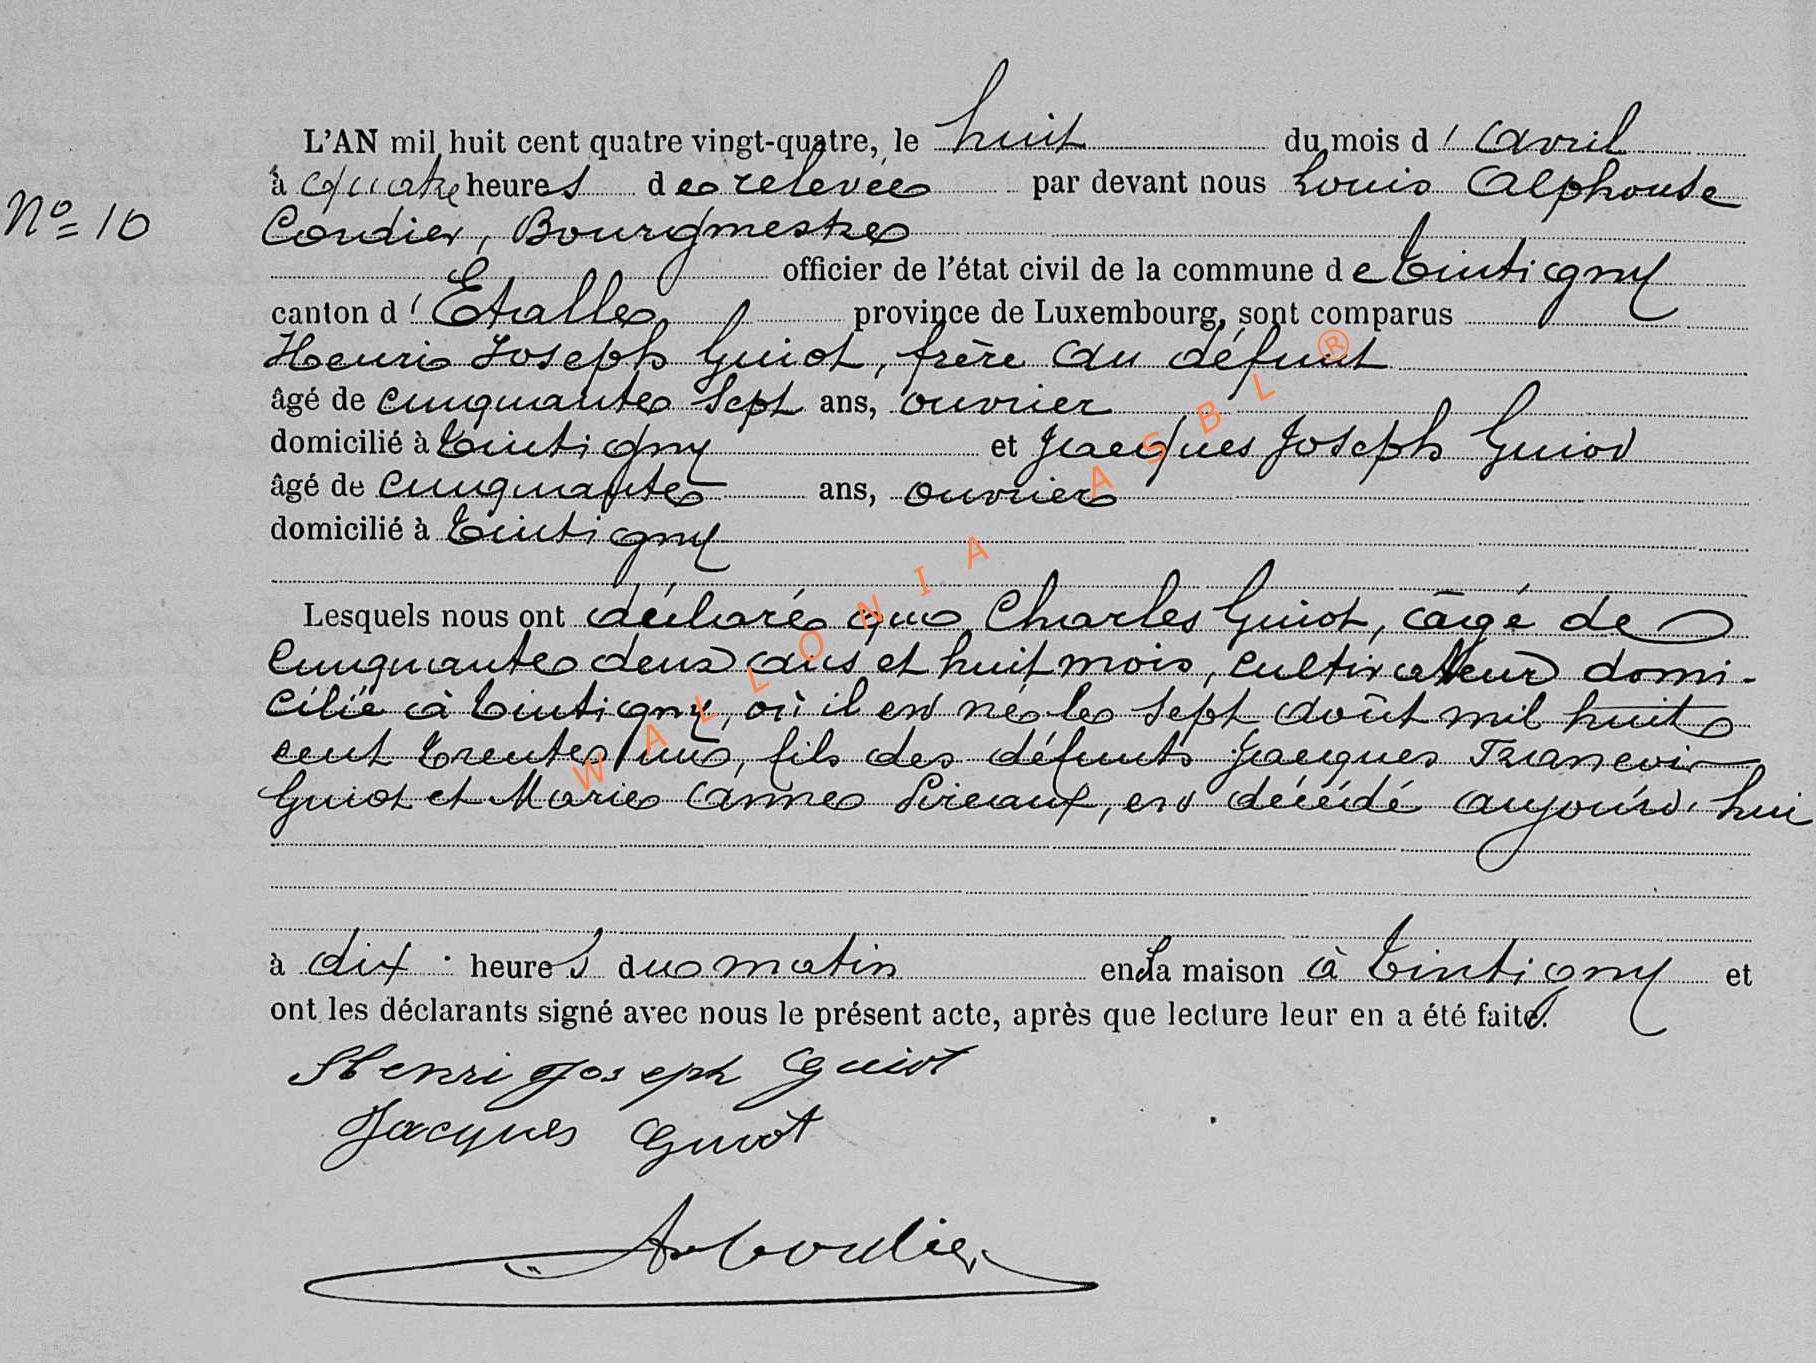 L'AN mil huit cent quatre vingt-quatre, le huit du mois d'avril
N° 10
à quatre heures de relevée par devant nous Louis Alphonse
Cordier, Bourgmestre
officier de l'état civil de la commune de Tintigny
canton d'Etalle province de Luxembourg, sont comparus
Henri Joseph Guiot, frère du défunt
âgé de cinquante sept ans, ouvrier
domicilié à Tintigny et Jacques Joseph Guiot
âgé de cinquante ans, ouvrier
domicilié à Tintigny
Lesquels nous ont déclaré que Charles Guiot, âgé de
cinquante deux ans et huit mois, cultivateur domi-
cilié à Tintigny, où il est né le sept août mil huit
cent trente un, fils des défunts Jacques François
Guiot et Marie Anne Pireaux, est décédé aujourd'hui
à dix heures du matin en sa maison à Tintigny et
ont les déclarants signé avec nous le présent acte, après que lecture leur en a été faite.
Henri Joseph Guiot
Jacques Guiot
Cordier
WALLONIA ASBL ®